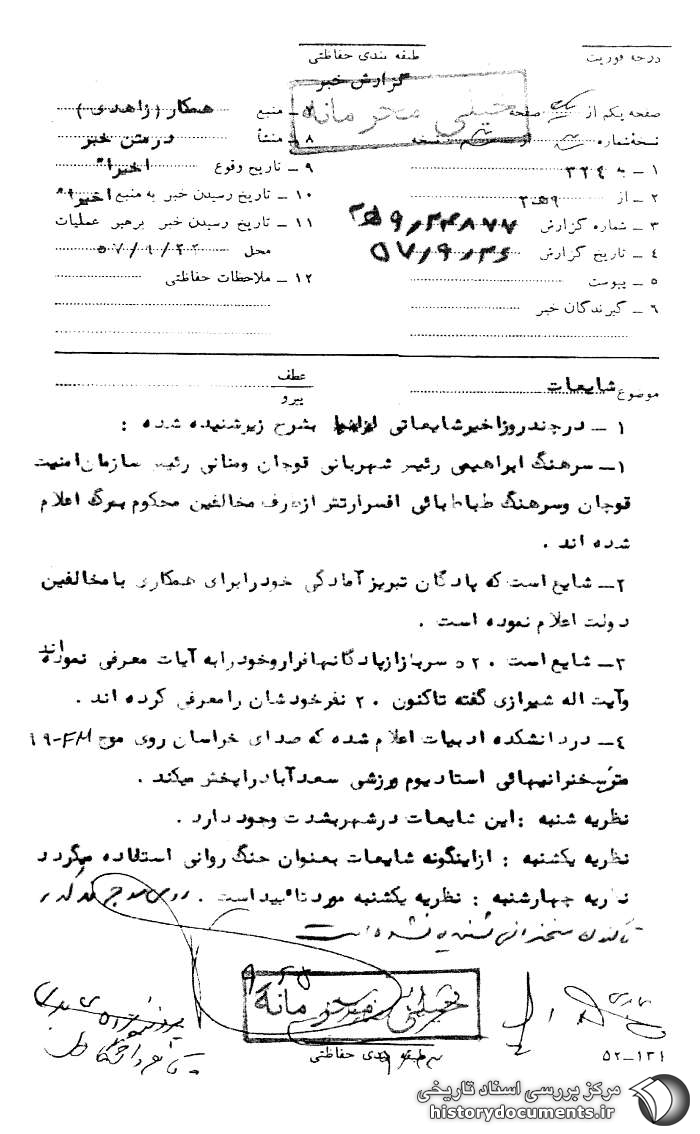 درجه فوریت
طبقه بندی حفاظتی
گزارش خبر
خیلی محرمانه
صفحه یکم از یک صفحه
نسخه شماره از نسخه
۱ ــ به ۳۲٤
۲ ــ از ۲ ه‍ ۹
۳ ــ شماره گزارش ۲ ه‍ ۹/۲۴۸۷۷
٤ ــ تاریخ گزارش ۵۷/۹/۲۶
۵ ــ پیوست
۶ ــ گیرندگان خبر
۷ ــ منبع همکار (زاهدی)
۸ ــ منشأ درمتن خبر
۹ ــ تاریخ وقوع اخیرا"
۱۰ ــ تاریخ رسیدن خبر به منبع اخیرا"
۱۱ ــ تاریخ رسیدن خبر برهبر عملیات
محل ۵۷/۹/۲۲
۱۲ ــ ملاحظات حفاظتی
موضوع شایعات
عطف
پیرو
۱ ــ درچند روز اخیر شایعاتی بشرح زیر شنیده شده :
۱ــ سرهنگ ابراهیمی رئیس شهربانی قوچان و رئیس سازمان امنیت
قوچان وسرهنگ طباطبائی افسر ارتش از طرف مخالفین محکوم بمرگ اعلام
شده اند .
۲ــ شایع است که پادگان تبریز آمادگی خود را برای همکاری با مخالفین
دولت اعلام نموده است .
۳ــ شایع است ۵۲۰ سرباز از پادگانها فرار و خود را به آیات معرفی نموده اند
و آیت اله شیرازی گفته تاکنون ۲۰ نفر خودشان را معرفی کرده اند .
٤ــ در دانشکده ادبیات اعلام شده که صدای خراسان روی موج ۱۹-FM
متر سخنرانیهائی استادیوم ورزشی سعدآباد را پخش میکند .
نظریه شنبه : این شایعات در شهر بشدت وجود دارد .
نظریه یکشنبه : از اینگونه شایعات بعنوان جنگ روانی استفاده میگردد
نظریه چهارشنبه : نظریه یکشنبه مورد تائید است . روی موج
تاکنون سخنرانی شنیده نشده است
خیلی محرمانه
طبقه بندی حفاظتی
۱۳۱ــ۵۲
مرکز بررسی اسناد تاریخی
historydocuments.ir